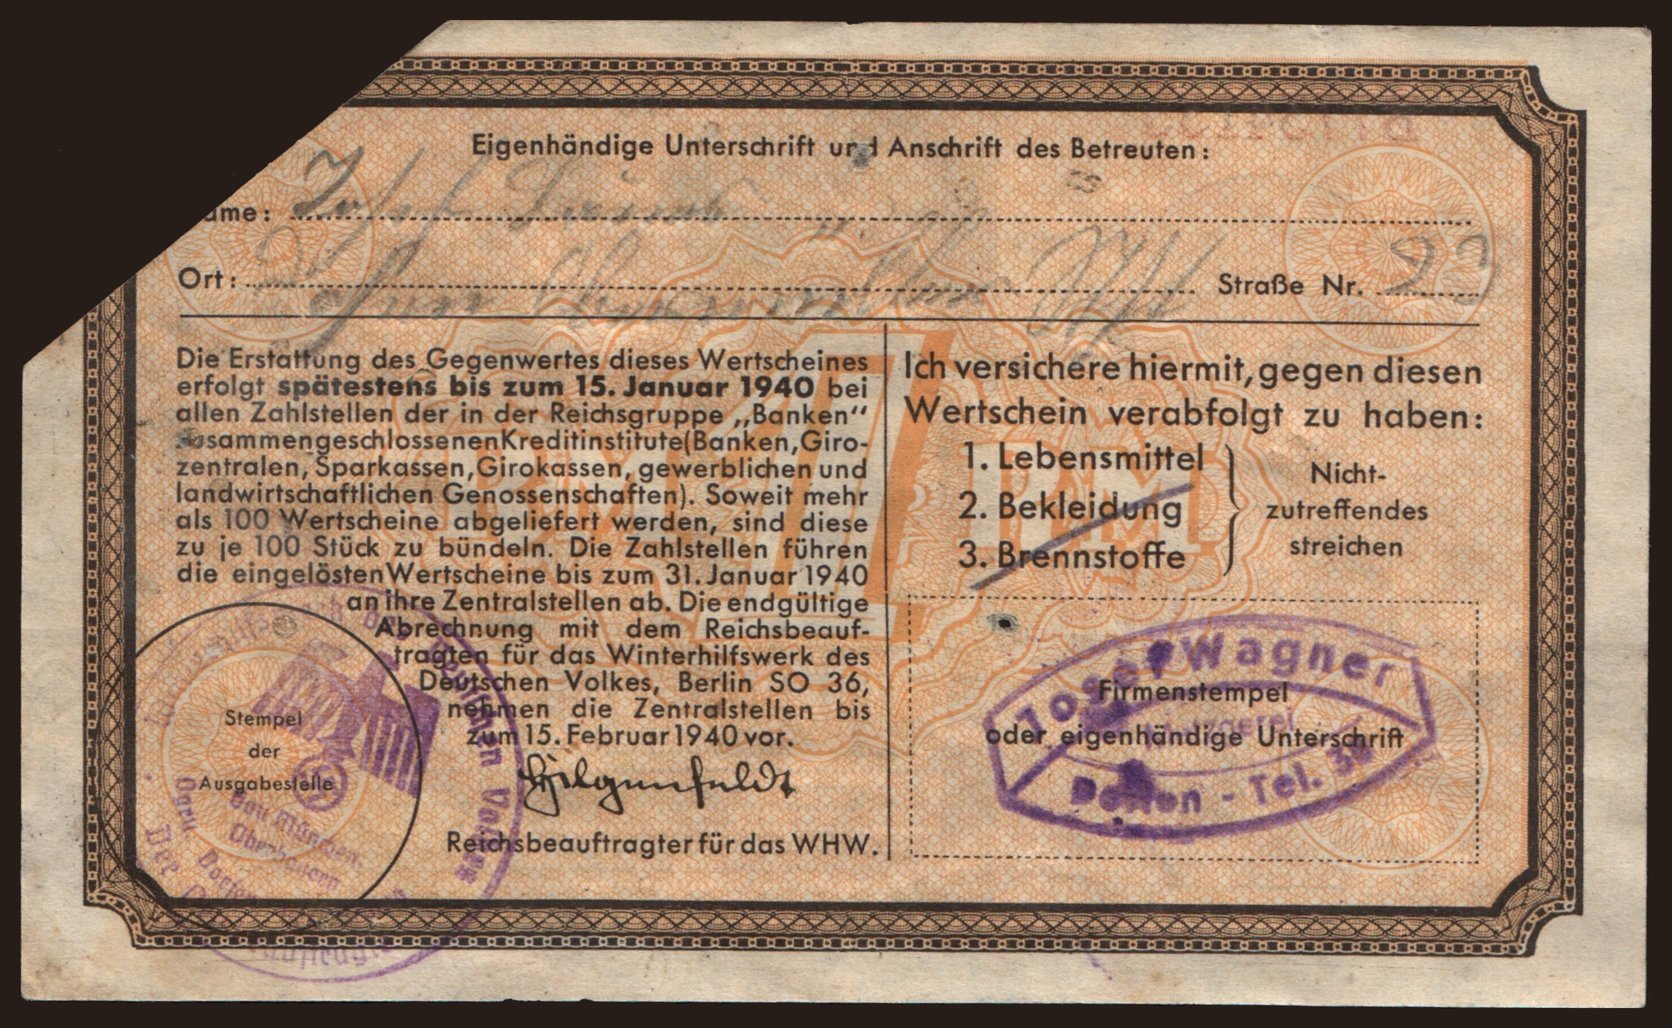 Eigenhändige Unterschrift und Anschrift des Betreuten:
ame: Josef
Ort:
Straße Nr.
Die Erstattung des Gegenwertes dieses Wertscheines
erfolgt spätestens bis zum 15. Januar 1940 bei
allen Zahlstellen der in der Reichsgruppe „Banken“
zusammengeschlossenen Kreditinstitute (Banken, Giro-
zentralen, Sparkassen, Girokassen, gewerblichen und
landwirtschaftlichen Genossenschaften). Soweit mehr
als 100 Wertscheine abgeliefert werden, sind diese
zu je 100 Stück zu bündeln. Die Zahlstellen führen
die eingelösten Wertscheine bis zum 31. Januar 1940
an ihre Zentralstellen ab. Die endgültige
Abrechnung mit dem Reichsbeauf-
tragten für das Winterhilfswerk des
Deutschen Volkes, Berlin SO 36,
nehmen die Zentralstellen bis
zum 15. Februar 1940 vor.
Hilgenfeldt
Reichsbeauftragter für das WHW.
Stempel
der
Ausgabestelle
Gau München-
Oberbayern
Ich versichere hiermit, gegen diesen
Wertschein verabfolgt zu haben:
1. Lebensmittel
2. Bekleidung
3. Brennstoffe
Nicht-
zutreffendes
streichen
1 RM
Josef Wagner
Firmenstempel
Metzgerei
oder eigenhändige Unterschrift
Tel.